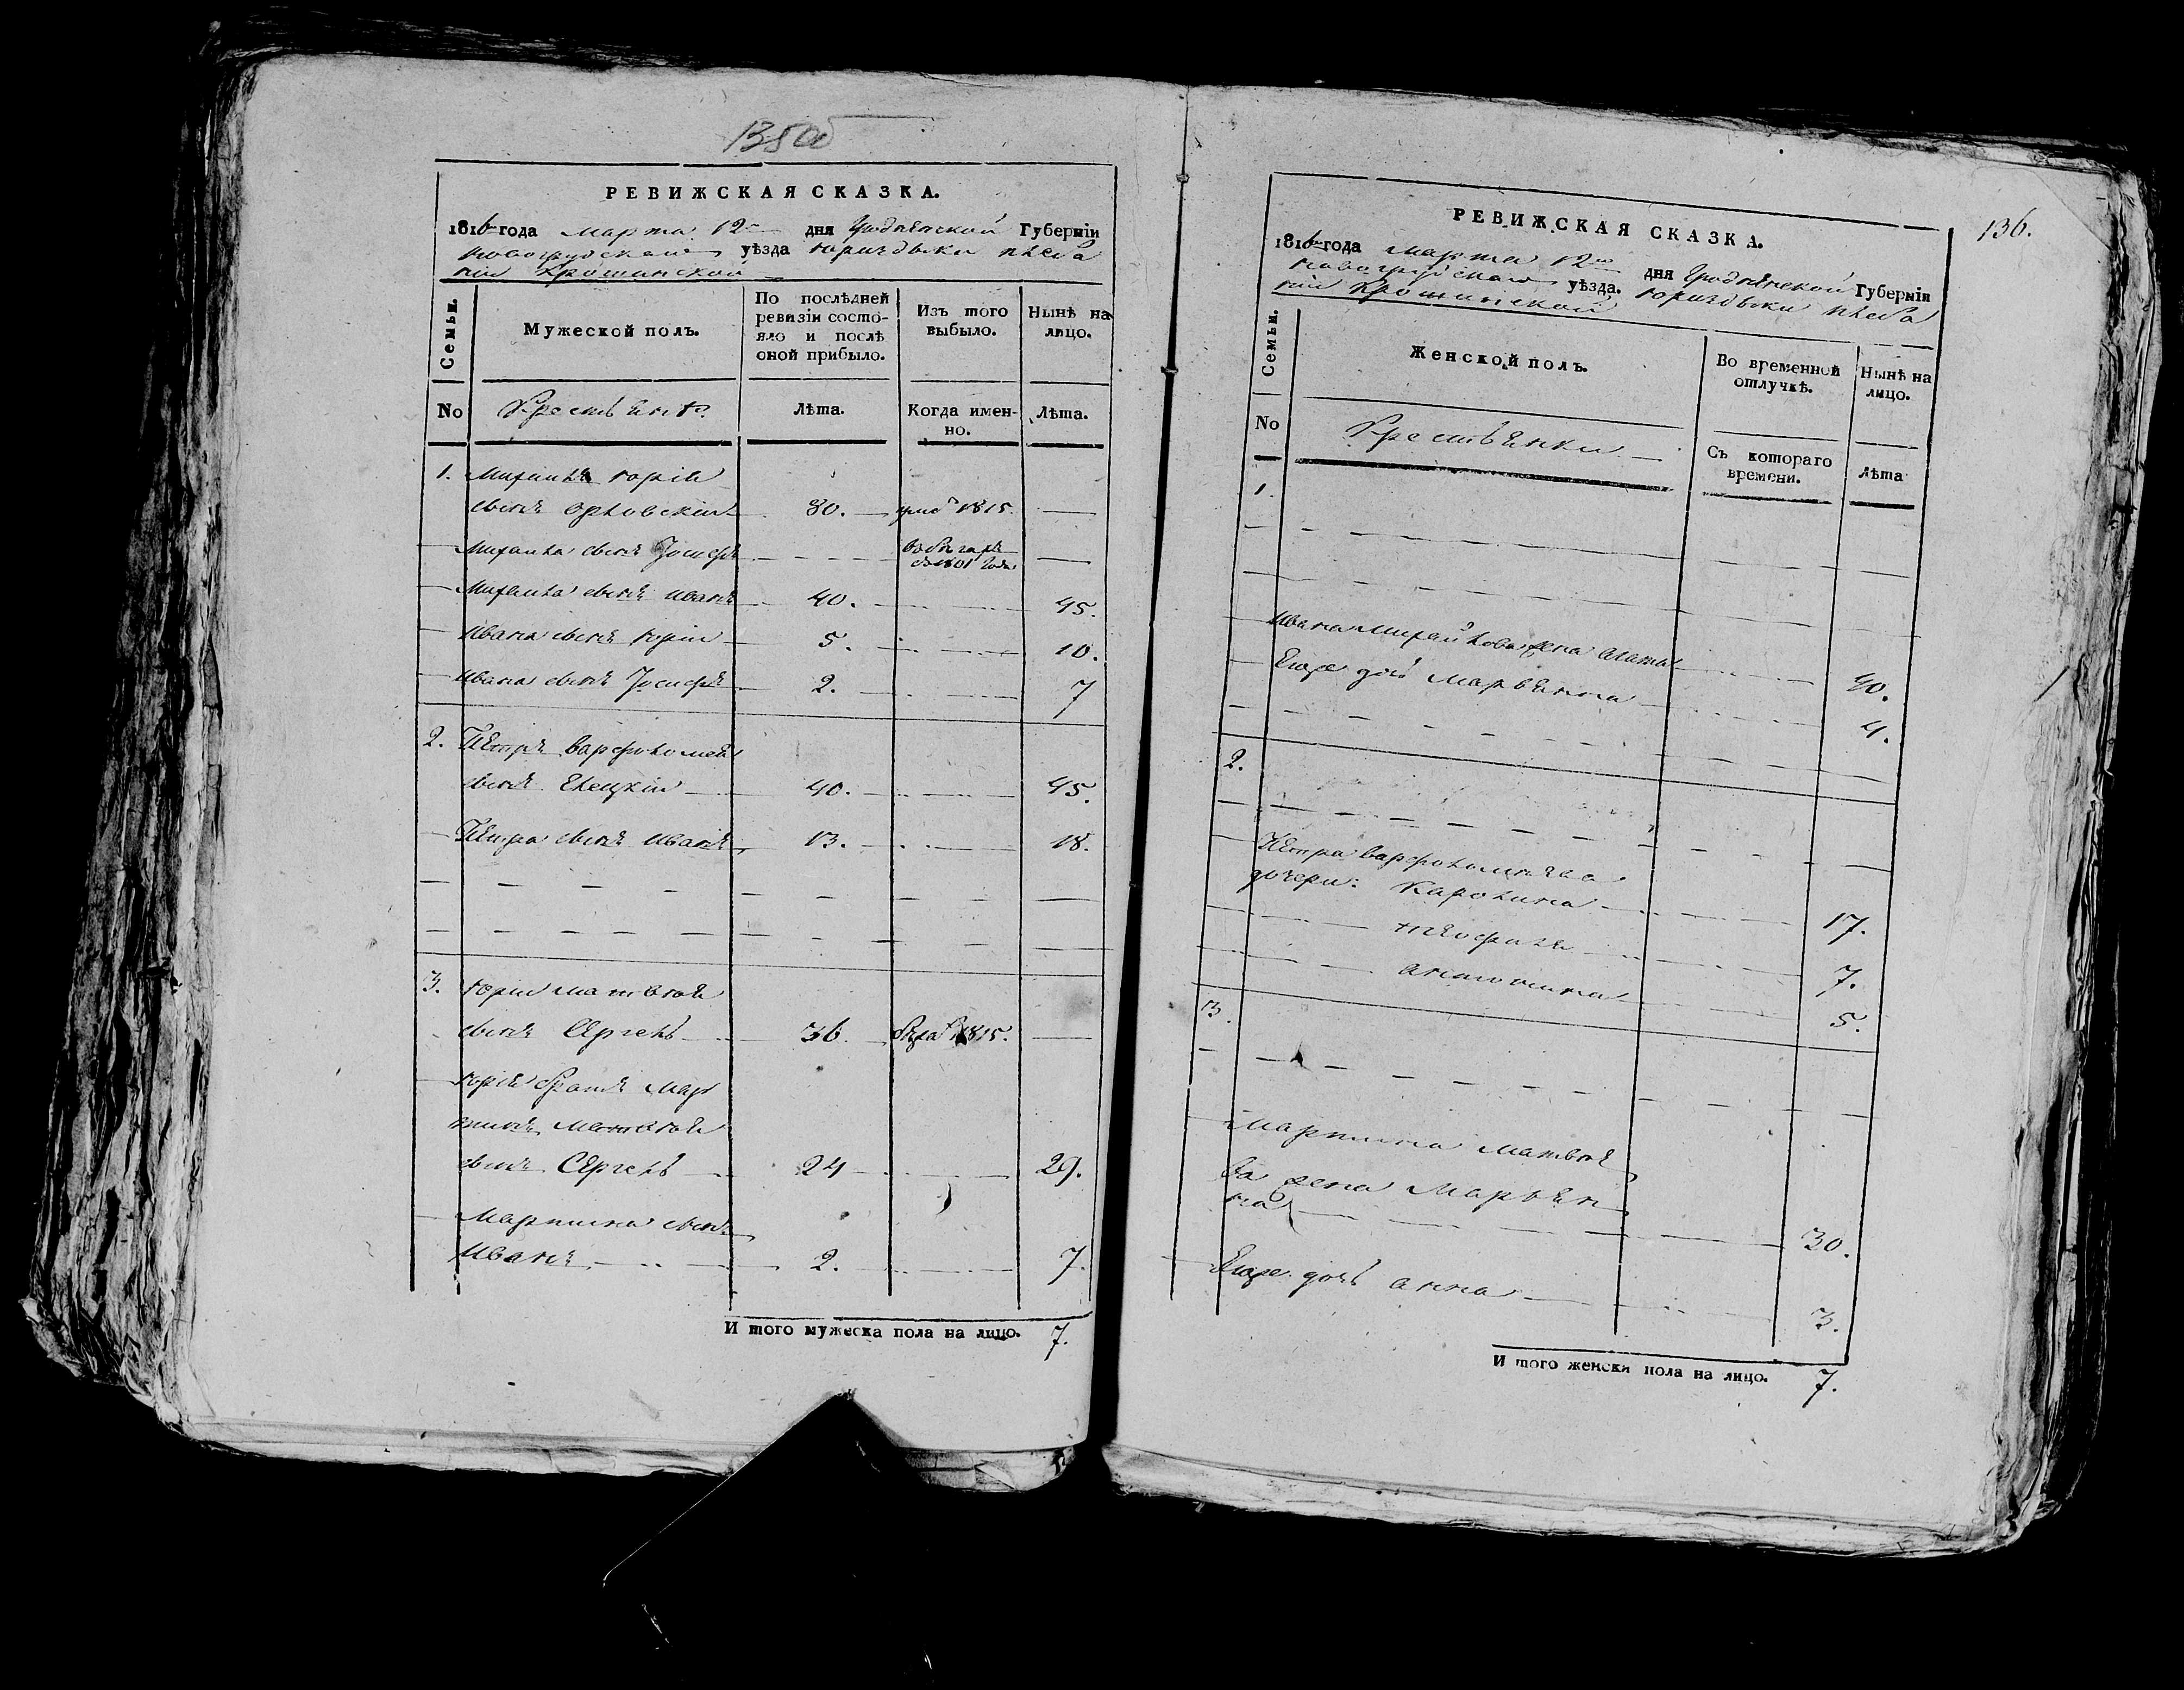 135об
РЕВИЖСКАЯ СКАЗКА.
1816 года марта 12 дня Гродненской Губерніи
новогрудскаго уѣзда юриздыки плеба
ніи Крошинской
Семьи.
Мужеской полъ.
По послѣдней
ревизіи состо-
яло и послѣ
оной прибыло.
Изъ того
выбыло.
Нынѣ на
лицо.
No
Крестьяне
Лѣта.
Когда имен-
но.
Лѣта.
1. Михаилъ Юрій
сынъ Орловскій 80. 1815
Михаила сынъ Іосифъ 1801 года
Михаила сынъ Иванъ 40. 45.
Ивана сынъ Юрій 5. 10.
Ивана сынъ Іосифъ 2. 7
2. Петръ Варфоломея
сынъ Елецкій 40. 45.
Петра сынъ Иванъ 13. 18.
3. Юрій Матвѣя
сынъ Сергель 36. 1815.
Юрія братъ Мар
тинъ Матвѣя
сынъ Сергель 24 29.
Мартина сынъ
Иванъ 2. 7.
И того мужеска пола на лицо. 7.
136.
РЕВИЖСКАЯ СКАЗКА.
1816 года марта 12го дня Гродненской Губерніи
новогрудскаго уѣзда. юриздыки плеба
ніи Крошинской
Семьи.
Женской полъ.
Во временной
отлучкѣ.
Нынѣ на
лицо.
No
Крестьянки
Съ котораго
времени.
Лѣта
1.
Ивана Михайлова жена Агата 40.
Егоже дочь Марьянна 4.
2.
Петра Варфоломеева
дочери: Каролина 17.
7.
Антонина 5.
3.
Мартина Матвѣе
ва жена Марьян
на 30.
Егоже дочь Анна 3.
И того женска пола на лицо. 7.